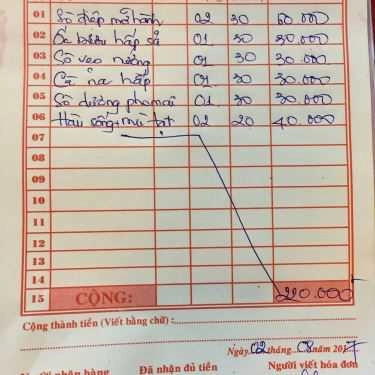 01 Sò điệp mỡ hành 02 30 60.000
02 Ốc bươu hấp sả 01 30 30.000
03 Sò vẹo nướng 01 30 30.000
04 Cà na hấp 01 30 30.000
05 Sò dương phomai 01 30 30.000
06 Hàu sống + mù tạt 02 20 40.000
07
08
09
10
11
12
13
14
15 CỘNG: 220.000
Cộng thành tiền (Viết bằng chữ) :
Ngày 02 tháng 08 năm 2017
hận hàng Đã nhận đủ tiền Người viết hóa đơn